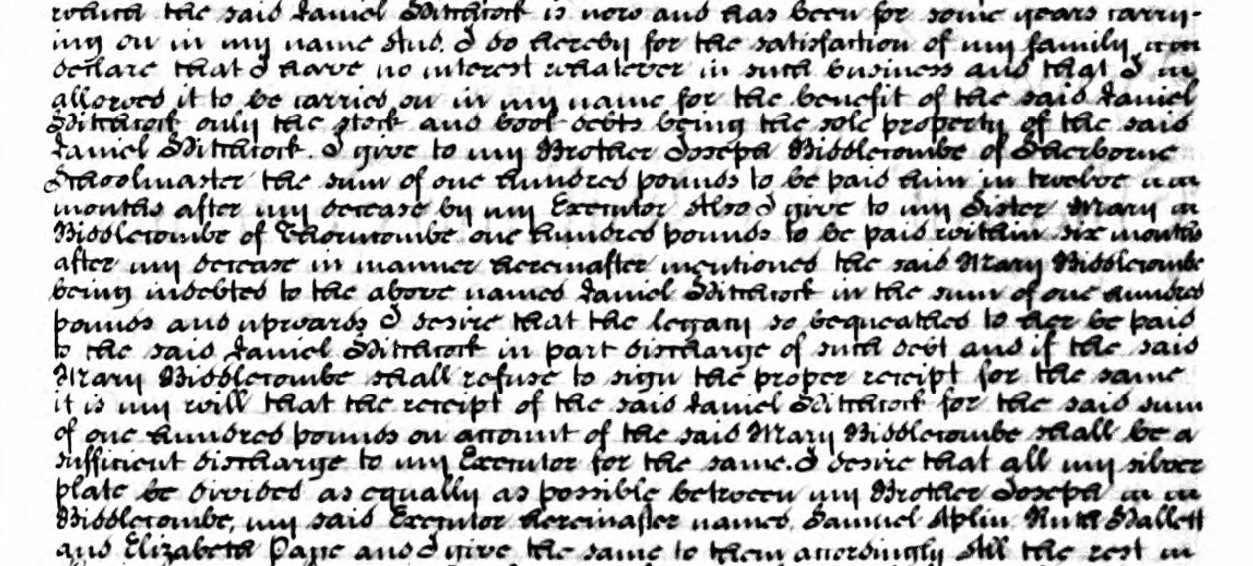 which the said Daniel Hitchcock is now and has been for some years carry-
ing on in my name And I do hereby for the satisfaction of my family
declare that I have no interest whatever in such business and that I
allowed it to be carried on in my name for the benefit of the said Daniel
Hitchcock only the stock and book debts being the sole property of the said
Daniel Hitchcock. I give to my Brother Joseph Biddlecombe of Sherborne
Schoolmaster the sum of one hundred pounds to be paid him in twelve
months after my decease by my Executor Also I give to my Sister Mary
Biddlecombe of Thorncombe one hundred pounds to be paid within six months
after my decease in manner hereinafter mentioned the said Mary Biddlecombe
being indebted to the above named Daniel Hitchcock in the sum of one hundred
pounds and upwards I desire that the legacy so bequeathed to her be paid
to the said Daniel Hitchcock in part discharge of such debt and if the said
Mary Biddlecombe shall refuse to sign the proper receipt for the same
it is my will that the receipt of the said Daniel Hitchcock for the said sum
of one hundred pounds on account of the said Mary Biddlecombe shall be a
sufficient discharge to my Executor for the same. I desire that all my silver
plate be divided as equally as possible between my Brother Joseph
Biddlecombe, my said Executor hereinafter named, Samuel Aplin Ruth Hallett
and Elizabeth Page and I give the same to them accordingly All the rest